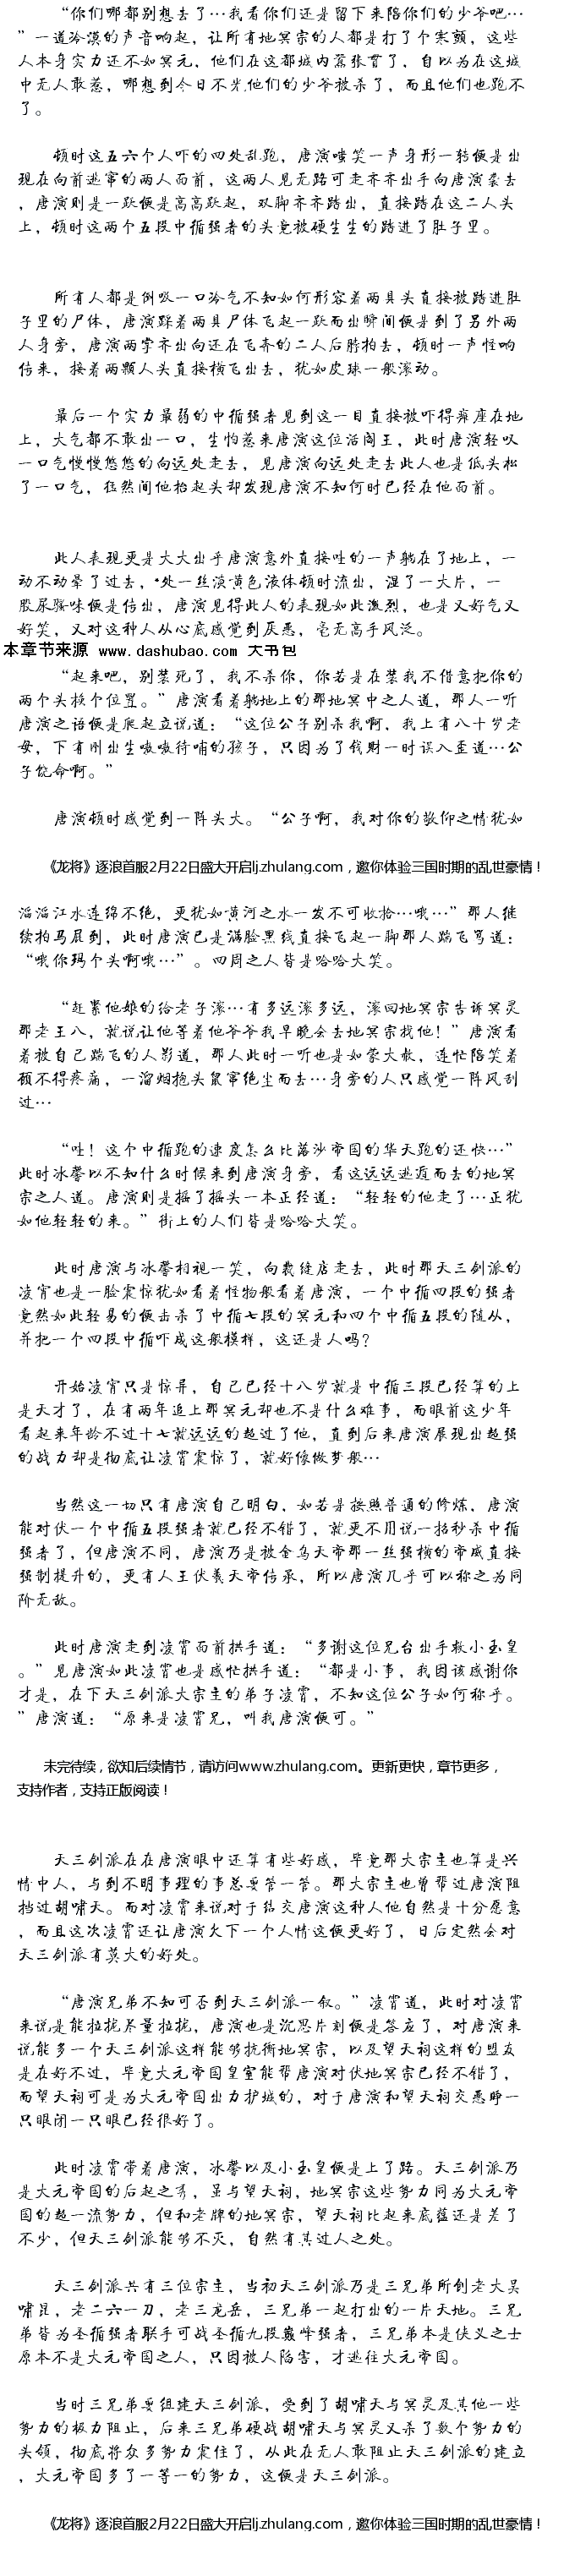 “你们哪都别想去了…我看你们还是留下来陪你们的少爷吧…
”一道冷漠的声音响起，让所有地冥宗的人都是打了个寒颤，这些
人本身实力还不如冥元，他们在这都城内嚣张贯了，自以为在这城
中无人敢惹，哪想到今日不光他们的少爷被杀了，而且他们也跑不
了。
顿时这五六个人吓的四处乱跑，唐演嗤笑一声身形一转便是出
现在向前逃窜的两人面前，这两人见无路可走齐齐出手向唐演袭去
，唐演则是一跃便是高高跃起，双脚齐齐踏出，直接踏在这二人头
上，顿时这两个五段中循强者的头竟被硬生生的踏进了肚子里。
所有人都是倒吸一口冷气不知如何形容着两具头直接被踏进肚
子里的尸体，唐演踩着两具尸体飞起一跃而出瞬间便是到了另外两
人身旁，唐演两掌齐出向还在飞奔的二人后脖拍去，顿时一声怪响
传来，接着两颗人头直接横飞出去，犹如皮球一般滚动。
最后一个实力最弱的中循强者见到这一目直接被吓得瘫座在地
上，大气都不敢出一口，生怕惹来唐演这位活阎王，此时唐演轻叹
一口气慢慢悠悠的向远处走去，见唐演向远处走去此人也是低头松
了一口气，猛然间他抬起头却发现唐演不知何时已经在他面前。
此人表现更是大大出乎唐演意外直接哇的一声躺在了地上，一
动不动晕了过去，·处一丝淡黄色液体顿时流出，湿了一大片，一
股尿骚味便是传出，唐演见得此人的表现如此激烈，也是又好气又
好笑，又对这种人从心底感觉到厌恶，毫无高手风泛。
本章节来源 www.dashubao.com 大书包
“起来吧，别装死了，我不杀你，你若是在装我不借意把你的
两个头换个位置。”唐演看着躺地上的那地冥中之人道，那人一听
唐演之语便是爬起立说道：“这位公子别杀我啊，我上有八十岁老
母，下有刚出生嗷嗷待哺的孩子，只因为了钱财一时误入歪道…公
子饶命啊。”
唐演顿时感觉到一阵头大。“公子啊，我对你的敬仰之情犹如
《龙将》逐浪首服2月22日盛大开启lj.zhulang.com，邀你体验三国时期的乱世豪情！
滔滔江水连绵不绝，更犹如黄河之水一发不可收拾…哦…”那人继
续拍马屁到，此时唐演已是满脸黑线直接飞起一脚那人踹飞骂道：
“哦你玛个头啊哦…”。四周之人皆是哈哈大笑。
“赶紧他娘的给老子滚…有多远滚多远，滚回地冥宗告诉冥灵
那老王八，就说让他等着他爷爷我早晚会去地冥宗找他！”唐演看
着被自己踹飞的人影道，那人此时一听也是如蒙大赦，连忙陪笑着
顾不得疼痛，一溜烟抱头鼠窜绝尘而去…身旁的人只感觉一阵风刮
过…
“哇！这个中循跑的速度怎么比落沙帝国的华天跑的还快…”
此时冰馨以不知什么时候来到唐演身旁，看这远远逃遁而去的地冥
宗之人道。唐演则是摇了摇头一本正径道：“轻轻的他走了…正犹
如他轻轻的来。”街上的人们皆是哈哈大笑。
此时唐演与冰馨相视一笑，向裁缝店走去，此时那天三剑派的
凌宵也是一脸震惊犹如看着怪物般看着唐演，一个中循四段的强者
竟然如此轻易的便击杀了中循七段的冥元和四个中循五段的随从，
并把一个四段中循吓成这般模样，这还是人吗？
开始凌宵只是惊异，自己已经十八岁就是中循三段已经算的上
是天才了，在有两年追上那冥元却也不是什么难事，而眼前这少年
看起来年龄不过十七就远远的超过了他，直到后来唐演展现出超强
的战力却是彻底让凌霄震惊了，就好像做梦般…
当然这一切只有唐演自己明白，如若是按照普通的修炼，唐演
能对伏一个中循五段强者就已经不错了，就更不用说一招秒杀中循
强者了，但唐演不同，唐演乃是被金乌天帝那一丝强横的帝威直接
强制提升的，更有人王伏羲天帝传承，所以唐演几乎可以称之为同
阶无敌。
此时唐演走到凌霄面前拱手道：“多谢这位兄台出手救小玉皇
。”见唐演如此凌霄也是感忙拱手道：“都是小事，我因该感谢你
才是，在下天三剑派大宗主的弟子凌霄，不知这位公子如何称乎。
”唐演道：“原来是凌霄兄，叫我唐演便可。”
未完待续，欲知后续情节，请访问www.zhulang.com。更新更快，章节更多，
支持作者，支持正版阅读！
天三剑派在在唐演眼中还算有些好感，毕竟那大宗主也算是兴
情中人，与到不明事理的事总要管一管。那大宗主也曾帮过唐演阻
挡过胡啸天。而对凌霄来说对于结交唐演这种人他自然是十分愿意
，而且这次凌霄还让唐演欠下一个人情这便更好了，日后定然会对
天三剑派有莫大的好处。
“唐演兄弟不知可否到天三剑派一叙。”凌霄道，此时对凌霄
来说是能拉拢尽量拉拢，唐演也是沉思片刻便是答应了，对唐演来
说能多一个天三剑派这样能够抗衡地冥宗，以及望天祠这样的盟友
是在好不过，毕竟大元帝国皇室能帮唐演对伏地冥宗已经不错了，
而望天祠可是为大元帝国出力护城的，对于唐演和望天祠交恶睁一
只眼闭一只眼已经很好了。
此时凌霄带着唐演，冰馨以及小玉皇便是上了路。天三剑派乃
是大元帝国的后起之秀，虽与望天祠，地冥宗这些势力同为大元帝
国的超一流势力，但和老牌的地冥宗，望天祠比起来底蕴还是差了
不少，但天三剑派能够不灭，自然有其过人之处。
天三剑派共有三位宗主，当初天三剑派乃是三兄弟所创老大吴
啸昆，老二六一刀，老三龙岳，三兄弟一起打出的一片天地。三兄
弟皆为圣循强者联手可战圣循九段巅峰强者，三兄弟本是侠义之士
原本不是大元帝国之人，只因被人陷害，才逃往大元帝国。
当时三兄弟要组建天三剑派，受到了胡啸天与冥灵及其他一些
势力的极力阻止，后来三兄弟硬战胡啸天与冥灵又杀了数个势力的
头领，彻底将众多势力震住了，从此在无人敢阻止天三剑派的建立
，大元帝国多了一等一的势力，这便是天三剑派。
《龙将》逐浪首服2月22日盛大开启lj.zhulang.com，邀你体验三国时期的乱世豪情！